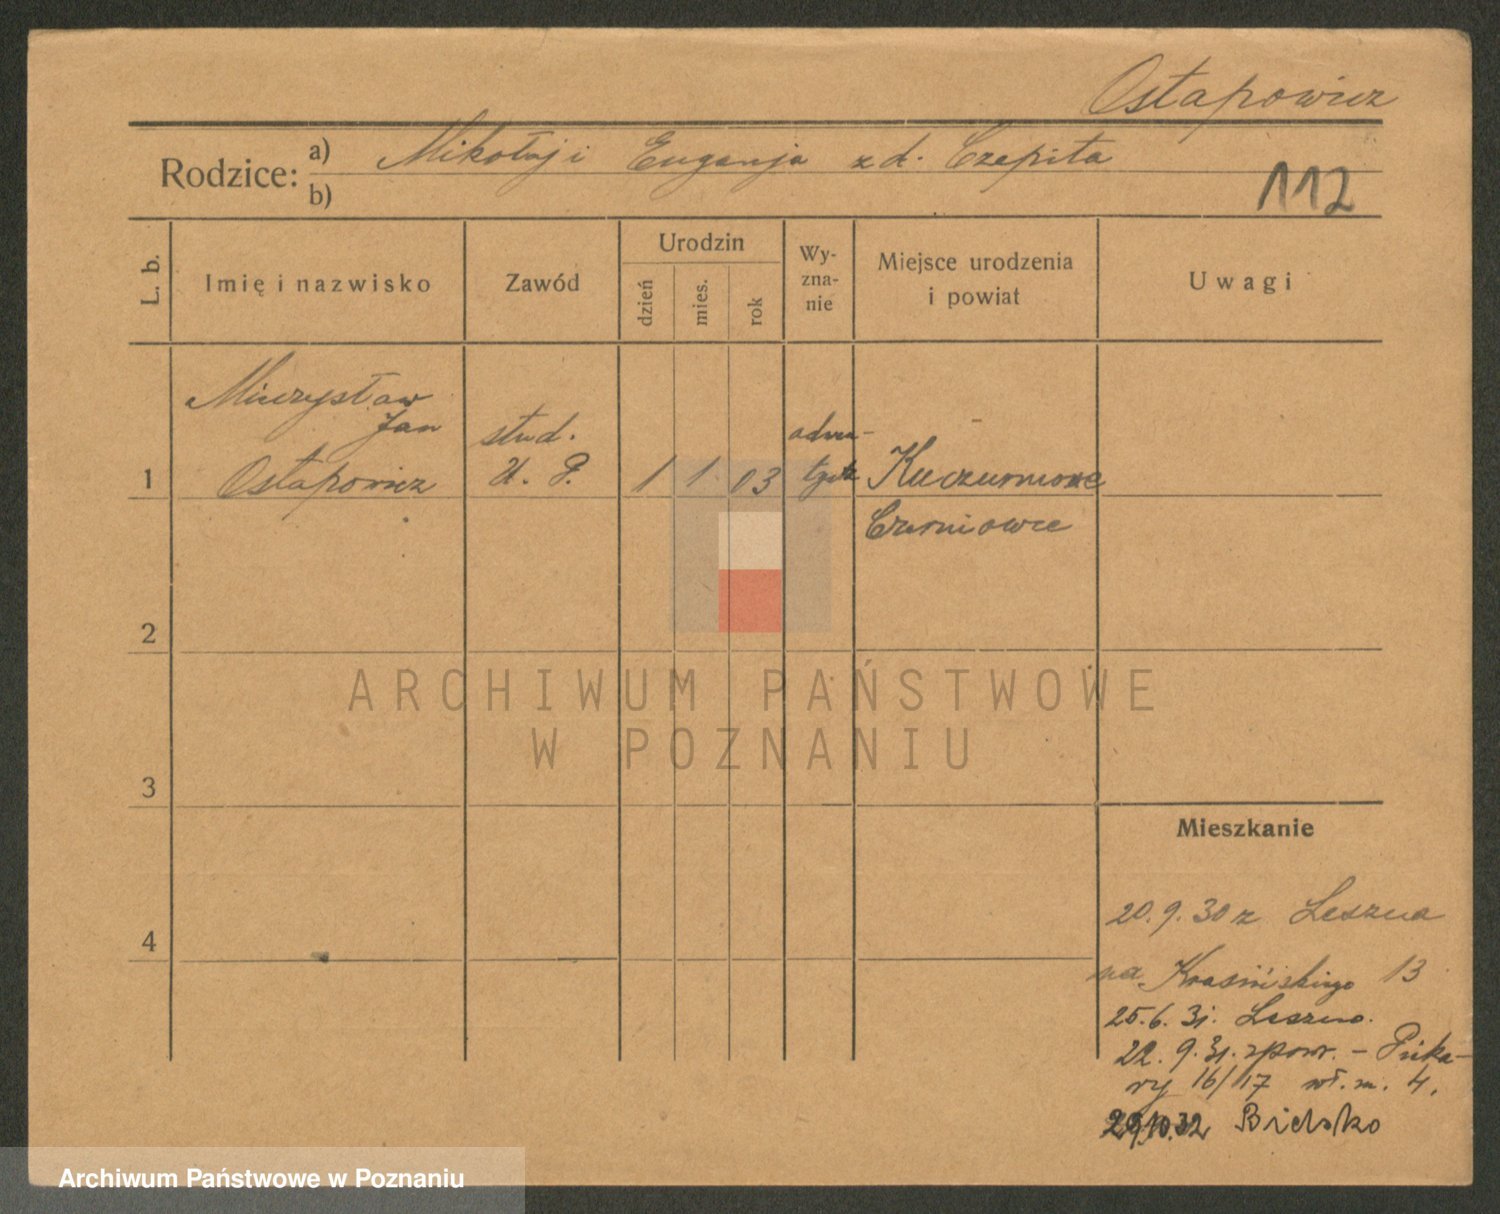 Ostapowicz
Rodzice: a) Mikołaj i Eugenja z d. Czepita
b)
112
L. b.
Imię i nazwisko
Zawód
Urodzin
dzień
mies.
rok
Wy-
zna-
nie
Miejsce urodzenia
i powiat
Uwagi
Mieczysław
Jan
1 Ostapowicz
stud.
U. P.
1 1 03
Kuczurmare
Czerniowce
2
3
4
ARCHIWUM PAŃSTWOWE
W POZNANIU
Mieszkanie
20.9.30 z Leszna
na Krasińskiego 13
25.6.31. Leszno.
22.9.31. zpowr. - Pieka-
ry 16/17 wł. m. 4.
29.10.32 Bielsko
Archiwum Państwowe w Poznaniu